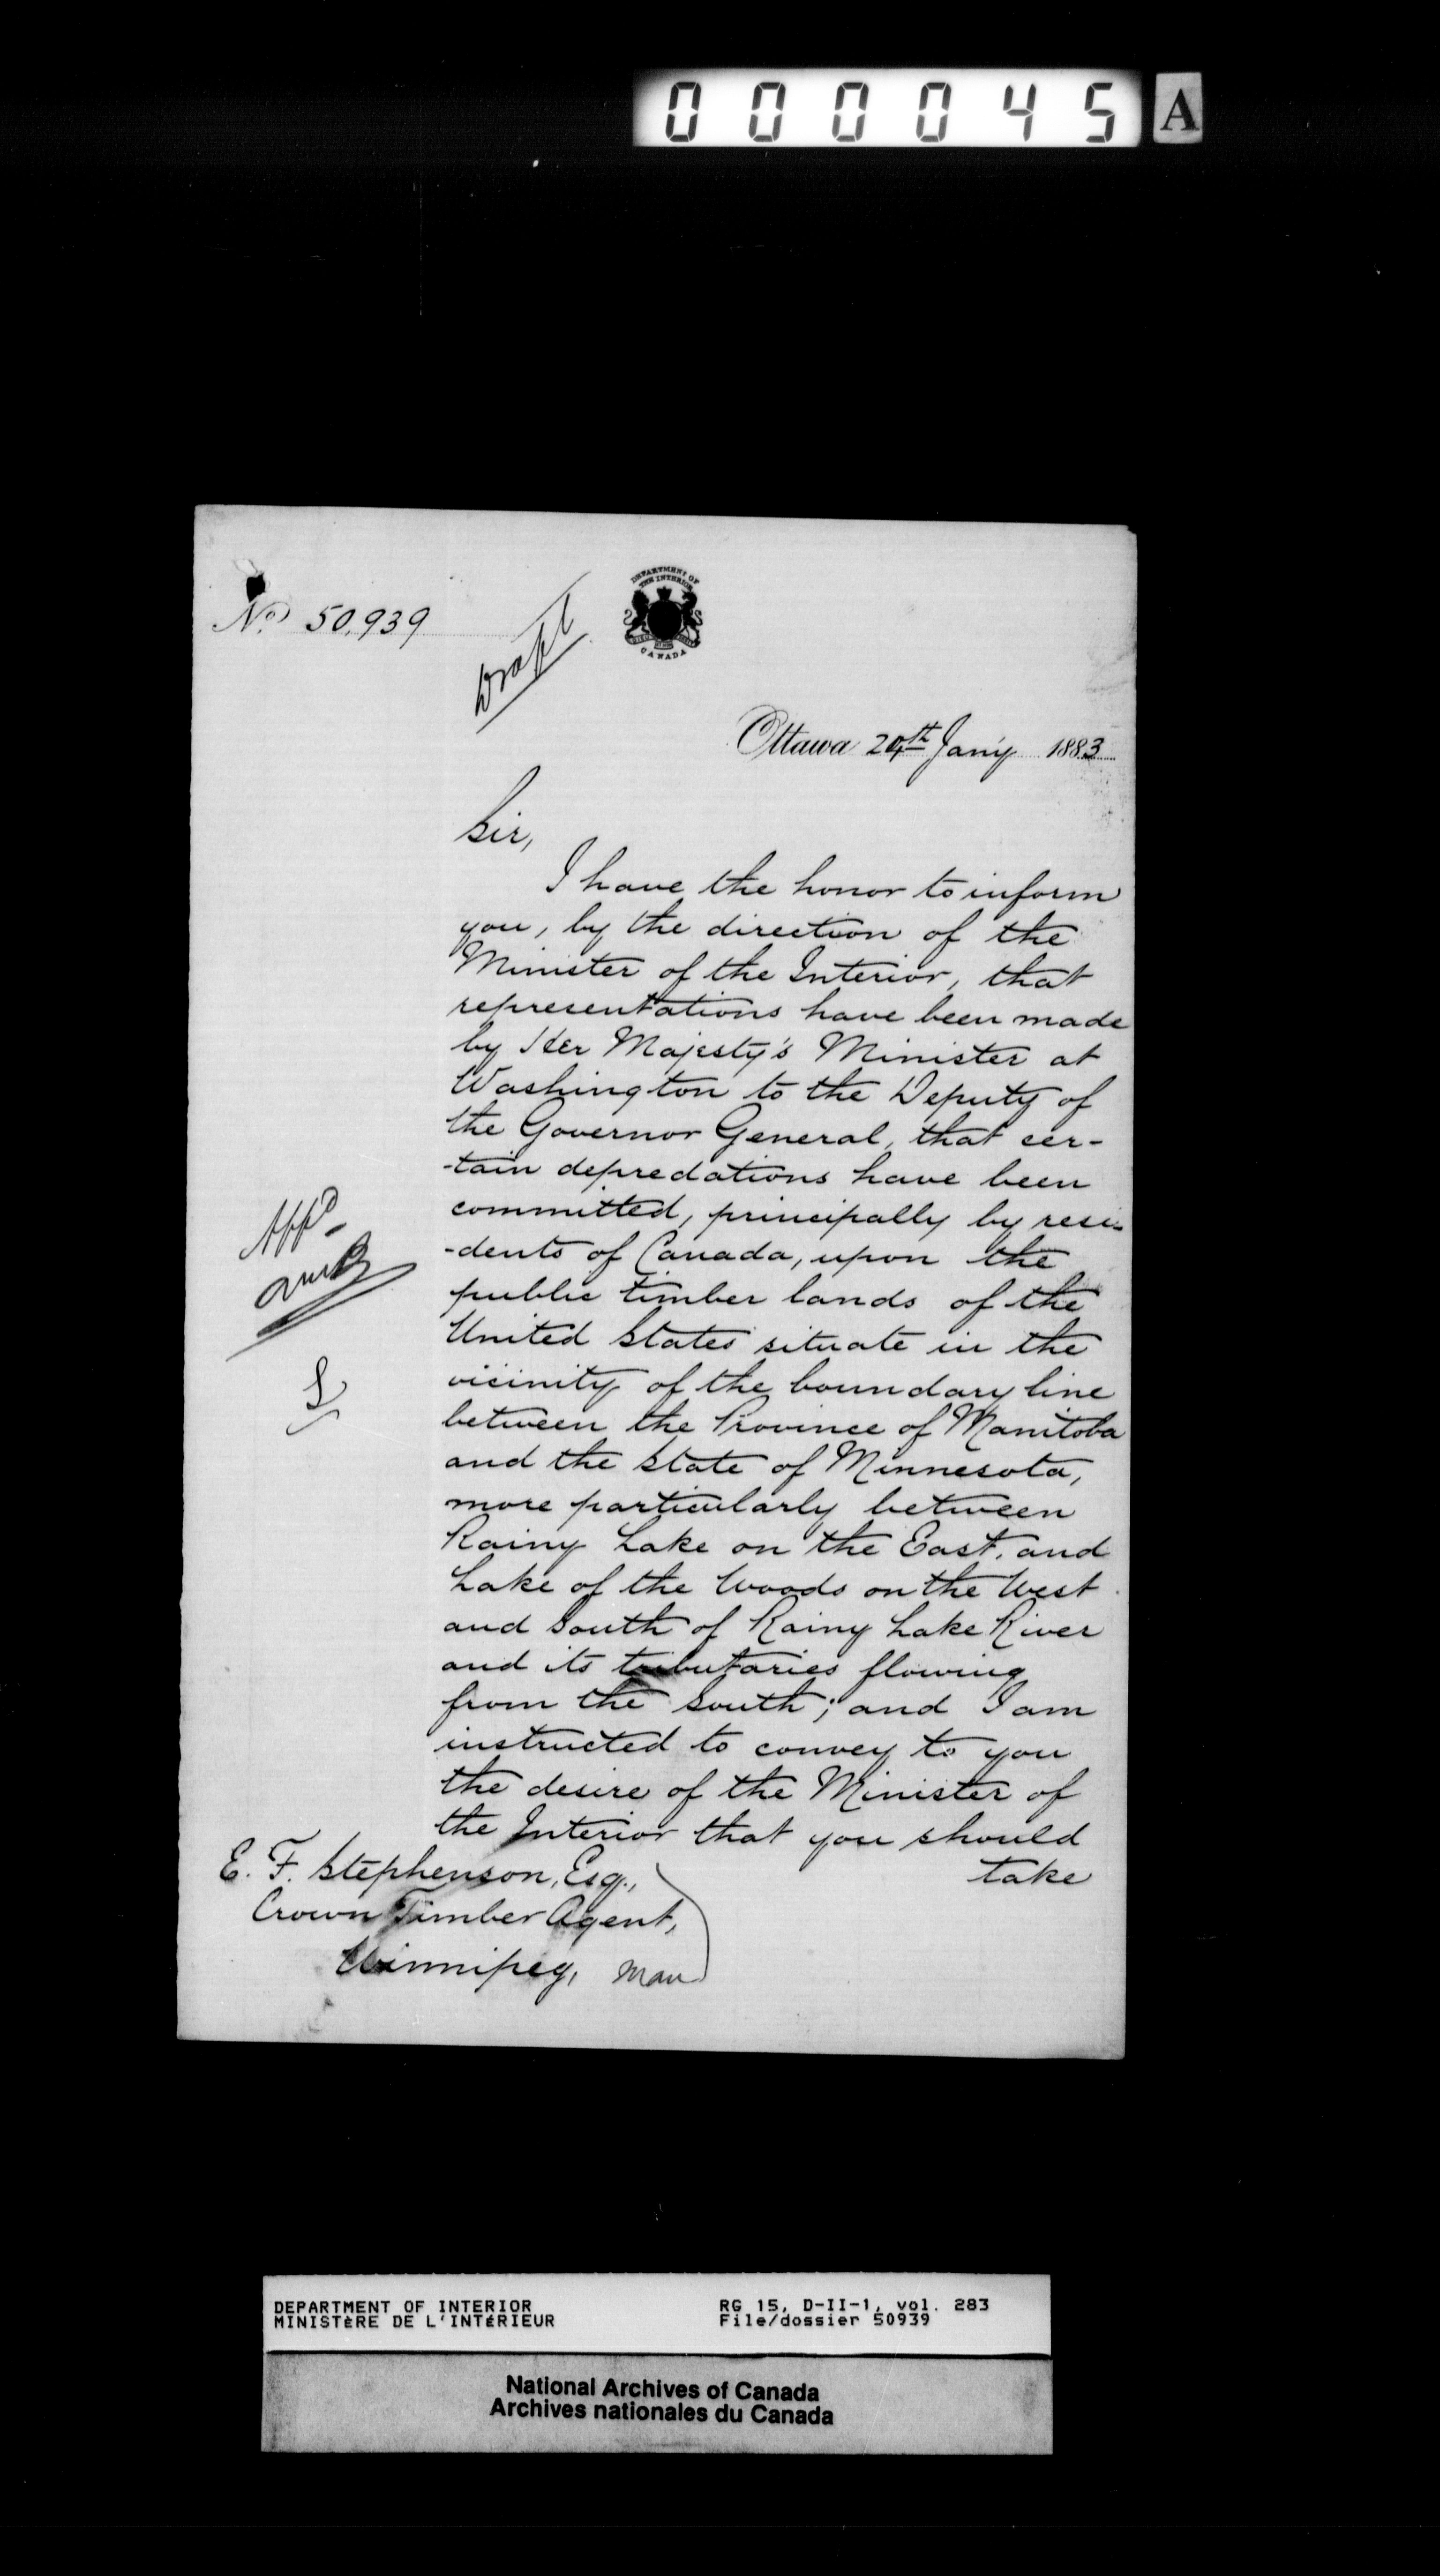 000045 A
No. 50,939
Draft
DEPARTMENT OF
THE INTERIOR
CANADA
Ottawa 24th Jan'y 1883
Sir,
I have the honor to inform
you, by the direction of the
Minister of the Interior, that
representations have been made
by Her Majesty's Minister at
Washington to the Deputy of
the Governor General, that cer-
-tain depredations have been
committed, principally by resi-
-dents of Canada, upon the
public timber lands of the
United States situate in the
vicinity of the boundary line
between the Province of Manitoba
and the State of Minnesota,
more particularly between
Rainy Lake on the East, and
Lake of the Woods on the West
and South of Rainy Lake River
and its tributaries flowing
from the South; and I am
instructed to convey to you
the desire of the Minister of
the Interior that you should
take
Appd
E. F. Stephenson, Esq.,
Crown Timber Agent,
Winnipeg, Man
DEPARTMENT OF INTERIOR
MINISTÈRE DE L'INTÉRIEUR
RG 15, D-II-1, vol. 283
File/dossier 50939
National Archives of Canada
Archives nationales du Canada